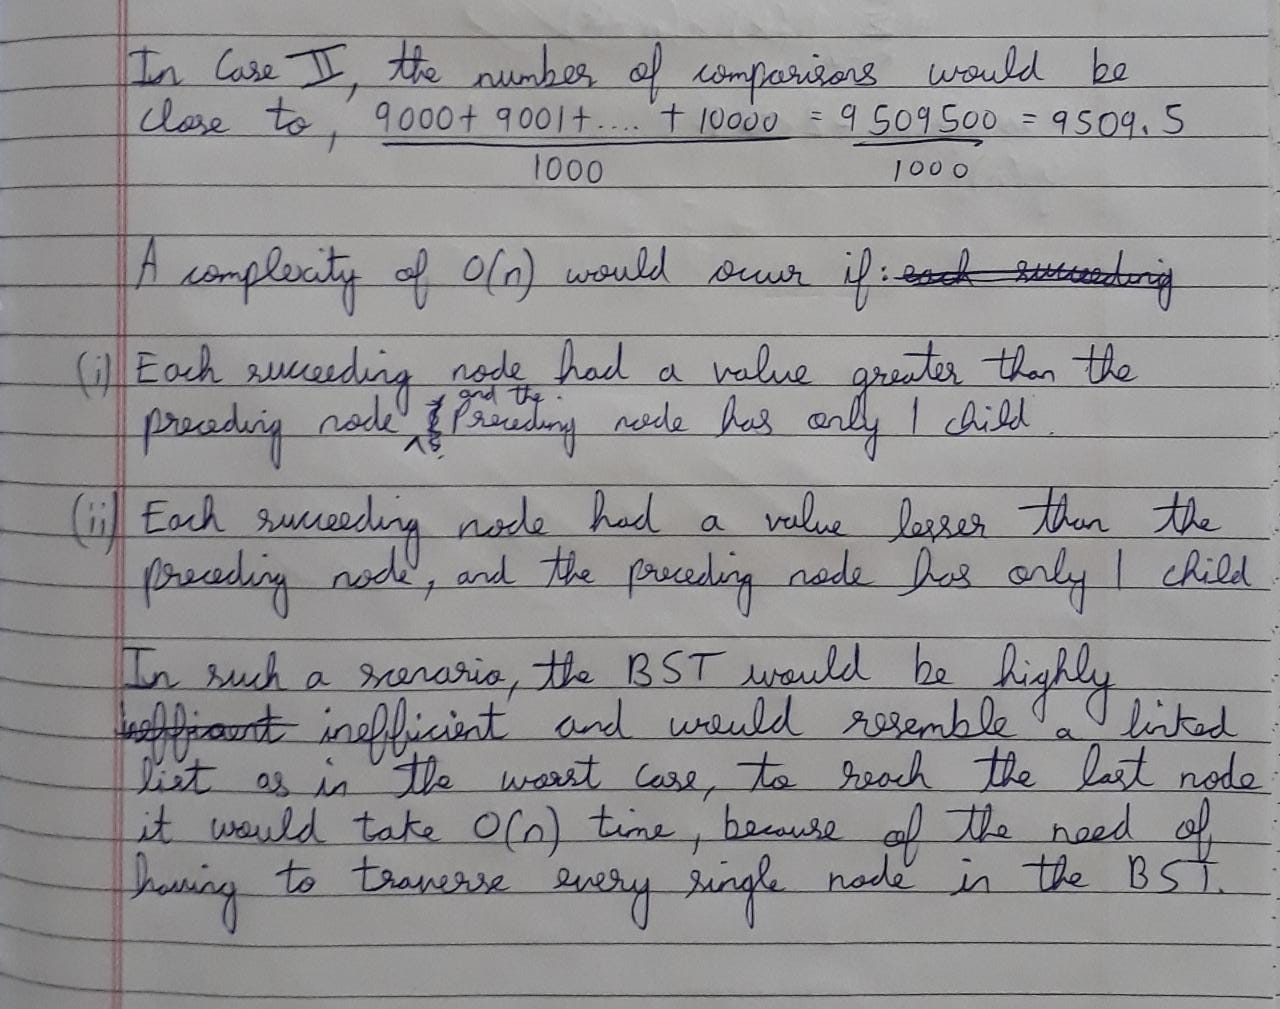 In Case II, the number of comparisons would be
close to, 9000+ 9001+.... + 10000 = 9509500 = 9509.5
1000 1000
A complexity of O(n) would occur if: each succeeding
(i) Each succeeding node had a value greater than the
and the
preceding node Preceding node has only 1 child.
(ii) Each succeeding node had a value lesser than the
preceding node, and the preceding node has only 1 child
In such a scenario, the BST would be highly
inefficient and would resemble a linked
list as in the worst case, to reach the last node
it would take O(n) time, because of the need of
having to traverse every single node in the BST.